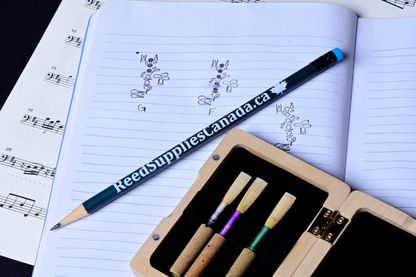 G
F
ReedSuppliesCanada.ca